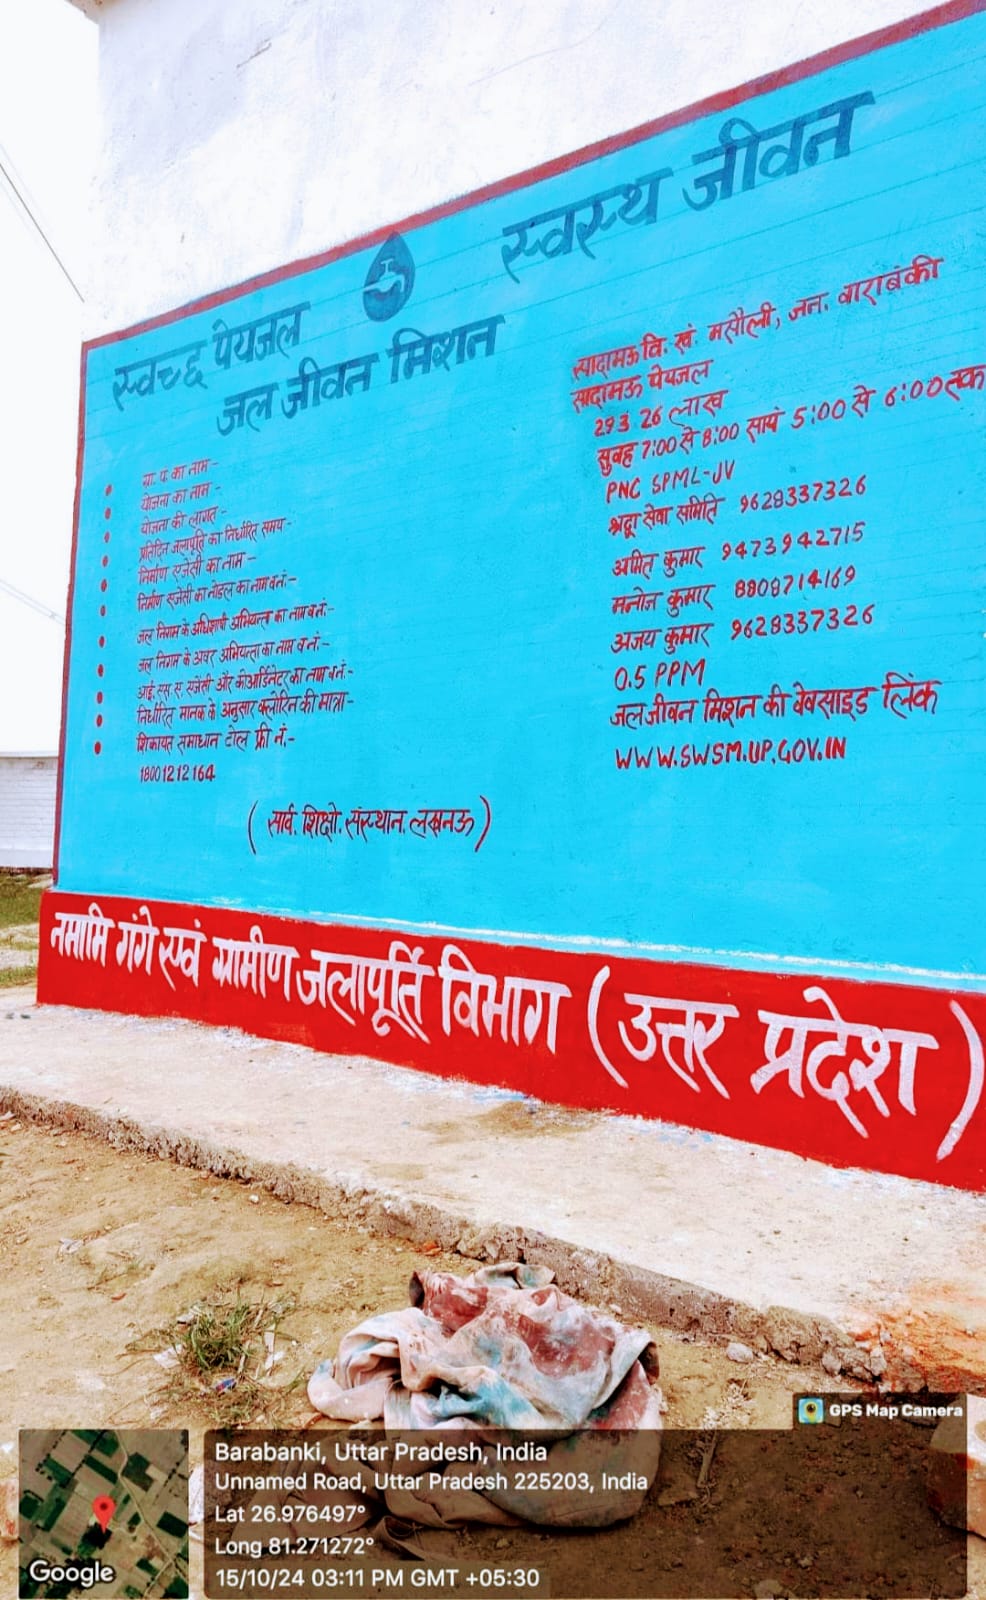 स्वच्छ पेयजल स्वस्थ जीवन
जल जीवन मिशन
ग्रा. पं. का नाम- सादामऊ वि. खं. मसौली, जन. बाराबंकी
योजना का नाम- सादामऊ पेयजल
योजना की लागत- 293.26 लाख
प्रतिदिन जलापूर्ति का निर्धारित समय- सुबह 7:00 से 8:00 सायं 5:00 से 6:00 तक
निर्माण एजेंसी का नाम- PNC SPML-JV
निर्माण एजेंसी का नोडल का नाम व नं:- श्रद्धा सेवा समिति 9628337326
जल निगम के अधिशाषी अभियन्ता का नाम व नं:- अमित कुमार 9473942715
जल निगम के अवर अभियन्ता का नाम व नं:- मनोज कुमार 8808714169
आई.एस.ए. एजेंसी और कोआर्डिनेटर का नाम व नं:- अजय कुमार 9628337326
निर्धारित मानक के अनुसार क्लोरिन की मात्रा- 0.5 PPM
शिकायत समाधान टोल फ्री नं.- जल जीवन मिशन की वेबसाइड लिंक
18001212164 WWW.SWSM.UP.GOV.IN
( सार्व. शिक्षो. संस्थान. लखनऊ )
नमामि गंगे एवं ग्रामीण जलापूर्ति विभाग ( उत्तर प्रदेश )
GPS Map Camera
Barabanki, Uttar Pradesh, India
Unnamed Road, Uttar Pradesh 225203, India
Lat 26.976497°
Long 81.271272°
15/10/24 03:11 PM GMT +05:30
Google